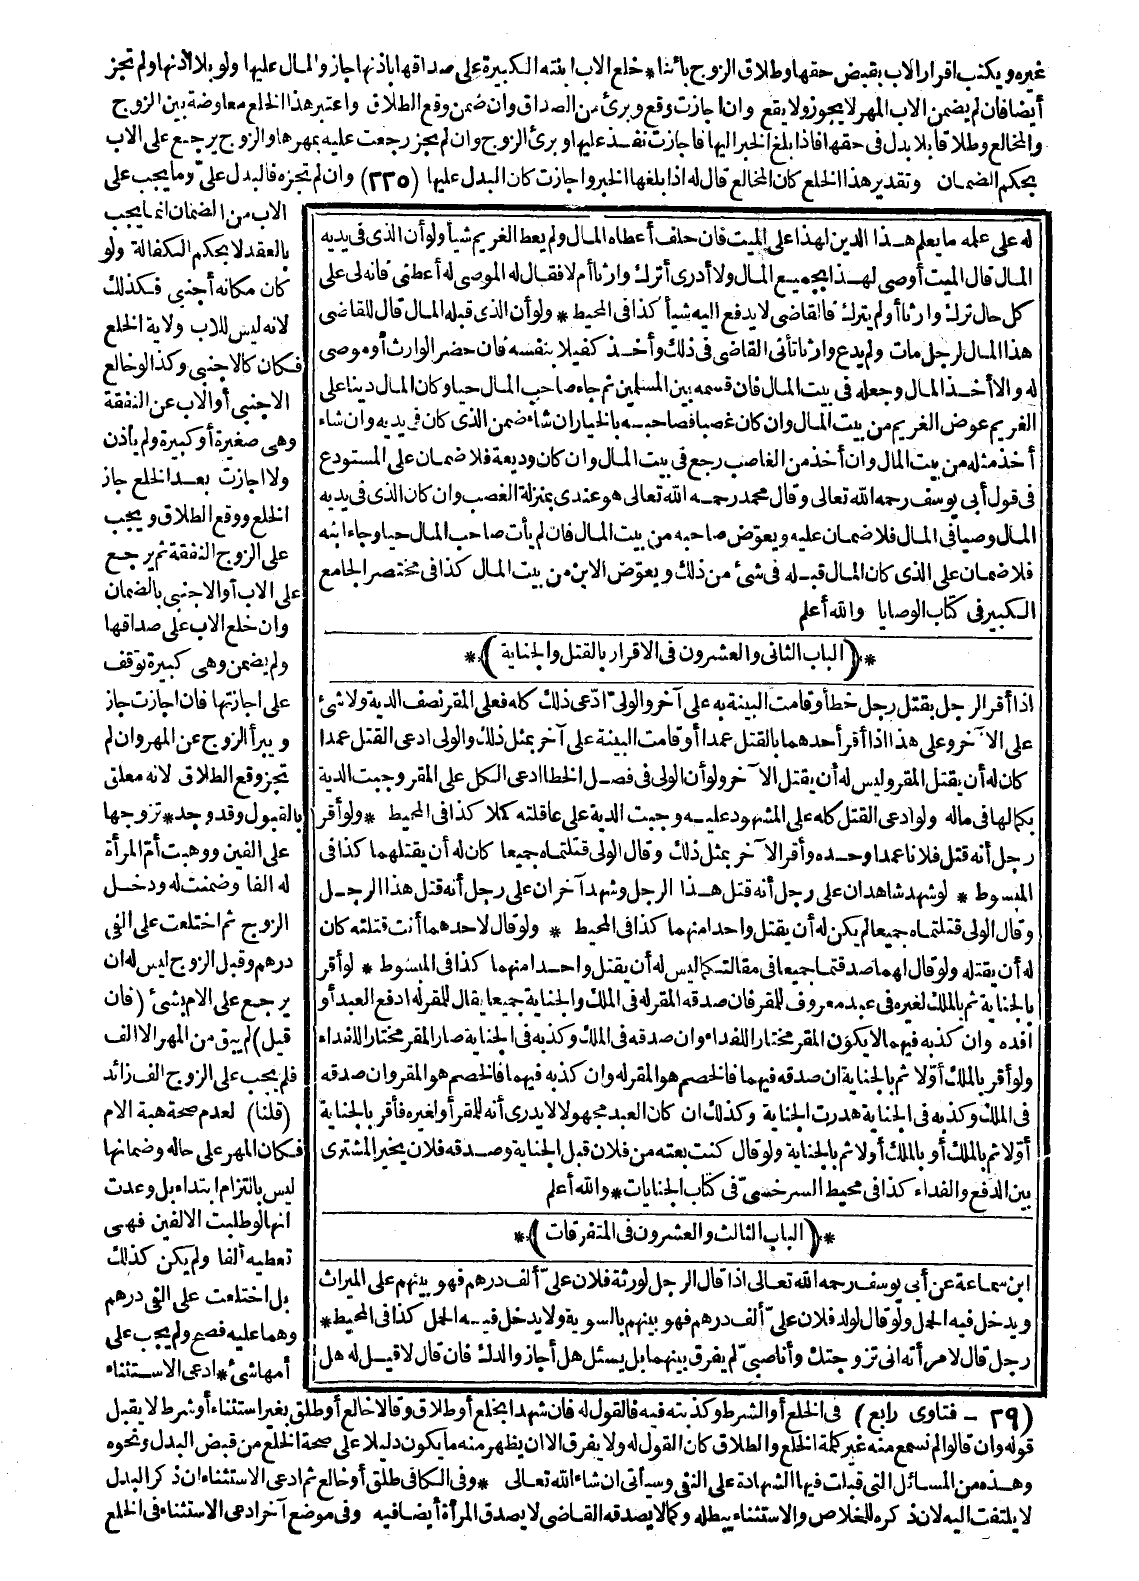 غيره ويكتب اقرار الاب بقبض حقها وطلاق الزوج بائنا * خلع الاب ابنته الكبيرة على صداقها باذنها جاز والمال عليها ولو بلا اذنها ولم تجز
أيضا فان لم يضمن الاب المهر لا يجوز ولا يقع وان اجازت وقع وبرئ من الصداق وان ضمن وقع الطلاق واعتبر هذا الخلع معاوضة بين الزوج
والمخالع وطلاقا بلا بدل فى حقها فاذا بلغ الخبر اليها فأجازت نفذ عليها وبرئ الزوج وان لم يجز رجعت عليه بمهرها والزوج يرجع على الاب
بحكم الضمان وتقدير هذا الخلع كان المخالع قال له اذا بلغها الخبر واجازت كان البدل عليها (٢٢٥) وان لم تجزه فالبدل علىّ وما يجب على
الاب من الضمان انما يجب
بالعقد لا بحكم الكفالة ولو
كان مكانه أجنبى فكذلك
لانه ليس للاب ولاية الخلع
فكان كالاجنبى وكذا لو خالع
الاجنبى أو الاب عن النفقة
وهى صغيرة أو كبيرة ولم يأذن
ولا اجازت بعد الخلع جاز
الخلع ووقع الطلاق ويجب
على الزوج النفقة ثم يرجع
على الاب أو الاجنبى بالضمان
وان خلع الاب على صداقها
ولم يضمن وهى كبيرة توقف
على اجازتها فان اجازت جاز
ويبرأ الزوج عن المهر وان لم
تجز وقع الطلاق لانه معلق
بالقبول وقد وجد * تزوجها
على الفين ووهبت أم المرأة
له الفا وضمنت له ودخل
الزوج ثم اختلعت على الفى
درهم وقبل الزوج ليس له ان
يرجع على الام بشئ (فان
قيل) لم يبق من المهر الا الف
فلم يجب على الزوج الف زائد
(قلنا) لعدم صحة هبة الام
فكان المهر على حاله وضمانها
ليس بالتزام ابتداء بل وعدت
انها لو طلبت الالفين فهى
تعطيه ألفا ولم يكن كذلك
بل اختلعت على الفى درهم
وهما عليه فصح ولم يجب على
أمها شئ * ادعى الاستثناء
له على علمه ما يعلم هذا الدين لهذا على الميت فان حلف أعطاه المال ولم يعط الغريم شيأ ولو أن الذى فى يديه
المال قال الميت أوصى لهذا بجميع المال ولا أدرى أترك وارثا أم لا فقال له الموصى له أعطنى فانه لى على
كل حال ترك وارثا أو لم يترك فالقاضى لا يدفع اليه شيأ كذا فى المحيط * ولو أن الذى قبله المال قال للقاضى
هذا المال لرجل مات ولم يدع وارثا تأنى القاضى فى ذلك وأخذ كفيلا بنفسه فان حضر الوارث أو موصى
له والا أخذ المال وجعله فى بيت المال فان قسمه بين المسلمين ثم جاء صاحب المال حيا وكان المال دينا على
الغريم عوض الغريم من بيت المال وان كان غصبا فصاحبه بالخيار ان شاء ضمن الذى كان فى يديه وان شاء
أخذ مثله من بيت المال وان أخذ من الغاصب رجع فى بيت المال وان كان وديعة فلا ضمان على المستودع
فى قول أبى يوسف رحمه الله تعالى وقال محمد رحمه الله تعالى هو عندى بمنزلة الغصب وان كان الذى فى يديه
المال وصيا فى المال فلا ضمان عليه ويعوّض صاحبه من بيت المال فان لم يأت صاحب المال حيا وجاء ابنه
فلا ضمان على الذى كان المال قبله فى شئ من ذلك ويعوّض الابن من بيت المال كذا فى مختصر الجامع
الكبير فى كتاب الوصايا والله أعلم
* (الباب الثانى والعشرون فى الاقرار بالقتل والجناية) *
اذا أقر الرجل بقتل رجل خطأ وقامت البينة به على آخر والولىّ ادّعى ذلك كله فعلى المقر نصف الدية ولا شئ
على الآخر وعلى هذا اذا أقر أحدهما بالقتل عمدا أو قامت البينة على آخر بمثل ذلك والولى ادعى القتل عمدا
كان له أن يقتل المقر وليس له أن يقتل الآخر ولو أن الولى فى فصل الخطا ادعى الكل على المقر وجبت الدية
بكمالها فى ماله ولو ادعى القتل كله على المشهود عليه وجبت الدية على عاقلته كملا كذا فى المحيط * ولو أقر
رجل أنه قتل فلانا عمدا وحده وأقر الآخر بمثل ذلك وقال الولى قتلتماه جميعا كان له أن يقتلهما كذا فى
المبسوط * لو شهد شاهدان على رجل أنه قتل هذا الرجل وشهد آخران على رجل أنه قتل هذا الرجل
وقال الولى قتلتماه جميعا لم يكن له أن يقتل واحدا منهما كذا فى المحيط * ولو قال لاحدهما أنت قتلته كان
له أن يقتله ولو قال لهما صدقتما جميعا فى مقالتكما ليس له أن يقتل واحدا منهما كذا فى المبسوط * لو أقر
بالجناية ثم بالملك لغيره فى عبد معروف للمقر فان صدقه المقر له فى الملك والجناية جميعا يقال للمقر له ادفع العبد أو
افده وان كذبه فيهما لا يكون المقر مختارا للفداء وان صدقه فى الملك وكذبه فى الجناية صار المقر مختارا للفداء
ولو أقر بالملك أوّلا ثم بالجناية ان صدقه فيهما فالخصم هو المقر له وان كذبه فيهما فالخصم هو المقر وان صدقه
فى الملك وكذبه فى الجناية هدرت الجناية وكذلك ان كان العبد مجهولا لا يدرى أنه للمقر أو لغيره فأقر بالجناية
أوّلا ثم بالملك أو بالملك أولا ثم بالجناية ولو قال كنت بعته من فلان قبل الجناية وصدقه فلان يخير المشترى
بين الدفع والفداء كذا فى محيط السرخسىّ فى كتاب الجنايات * والله أعلم
* (الباب الثالث والعشرون فى المتفرقات) *
ابن سماعة عن أبى يوسف رحمه الله تعالى اذا قال الرجل لورثة فلان علىّ ألف درهم فهو بينهم على الميراث
ويدخل فيه الحمل ولو قال لولد فلان علىّ ألف درهم فهو بينهم بالسوية ولا يدخل فيه الحمل كذا فى المحيط *
رجل قال لامرأته انى تزوجتك وأنا صبىّ لم يفرق بينهما بل يسئل هل أجاز والدك فان قال لا قيل له هل
(٢٩ - فتاوى رابع) فى الخلع أو الشرط وكذبته فيه فالقول له فان شهدا بخلع أو طلاق وقالا خالع أو طلق بغير استثناء أو شرط لا يقبل
قوله وان قالوا لم نسمع منه غير كلمة الخلع والطلاق كان القول له ولا يفرق الا ان يظهر منه ما يكون دليلا على صحة الخلع من قبض البدل ونحوه
وهذه من المسائل التى قبلت فيها الشهادة على النفى وسيأتى ان شاء الله تعالى * وفى الكافى طلق أو خالع ثم ادعى الاستثناء ان ذكر البدل
لا يلتفت اليه لان ذكره للخلاص والاستثناء يبطله وكما لا يصدقه القاضى لا يصدق المرأة أيضا فيه وفى موضع آخر ادعى الاستثناء فى الخلع